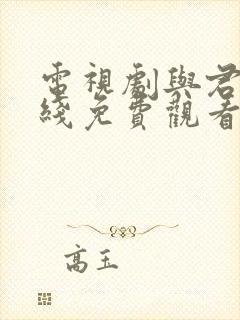 電視劇與君
綫免費觀看
高玉